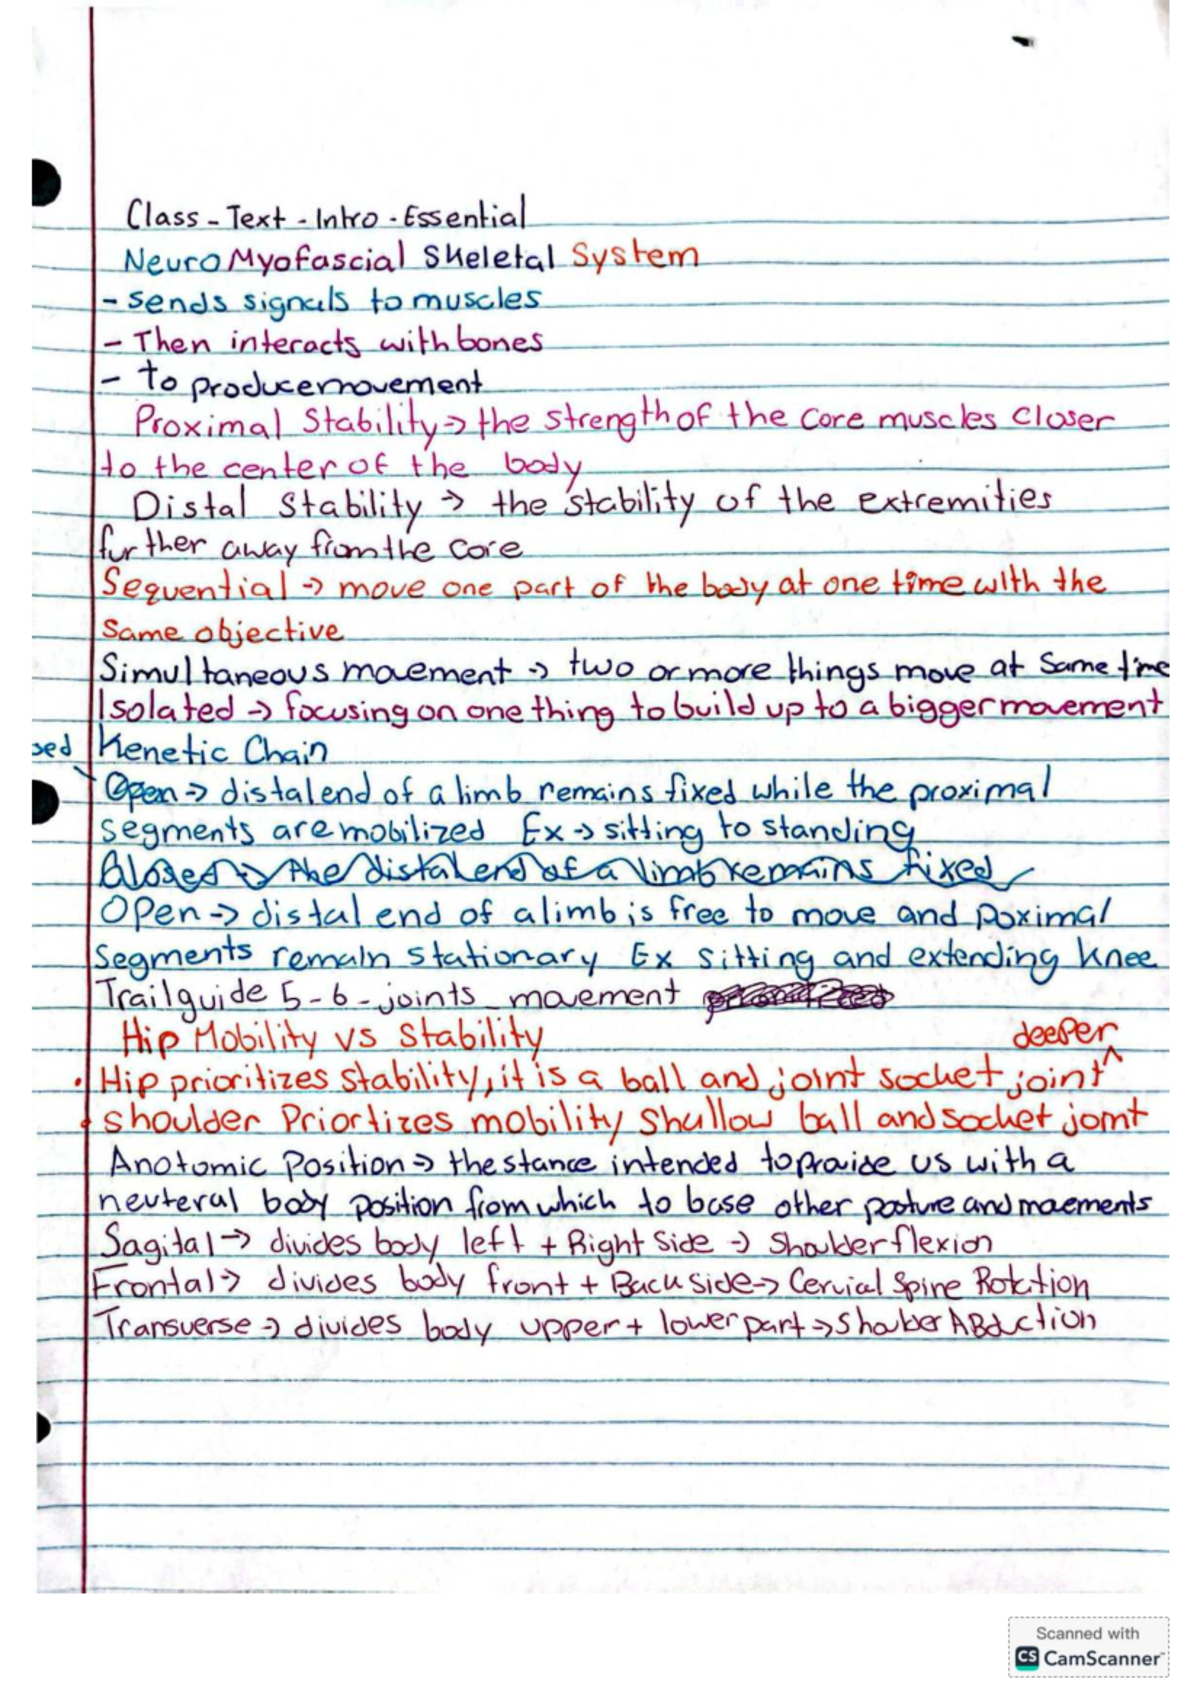 Class - Text - Intro - Essential
Neuro Myofascial Skeletal System
- sends signals to muscles
- Then interacts with bones
- to produce movement
Proximal Stability → the strength of the core muscles closer
to the center of the body
Distal Stability → the stability of the extremities
further away from the core
Sequential → move one part of the body at one time with the
same objective
Simultaneous movement → two or more things move at same time
Isolated → focusing on one thing to build up to a bigger movement
sed Kenetic Chain
Open → distal end of a limb remains fixed while the proximal
segments are mobilized Ex → sitting to standing
Closed → the distal end of a limb remains fixed
Open → distal end of a limb is free to move and poximal
segments remain stationary Ex sitting and extending knee
Trail guide 5-6 - joints movement
Hip Mobility vs Stability
deeper
• Hip prioritizes stability, it is a ball and joint socket joint ^
• shoulder Priortizes mobility shallow ball and socket joint
Anotomic Position → the stance intended to praide us with a
neuteral body position from which to base other posture and maements
Sagital → divides body left + Right Side → Shoulder flexion
Frontal → divides body front + Back side → Cervial Spine Rotation
Transverse → divides body upper + lower part → Shoulder ABduction
Scanned with
CS CamScanner